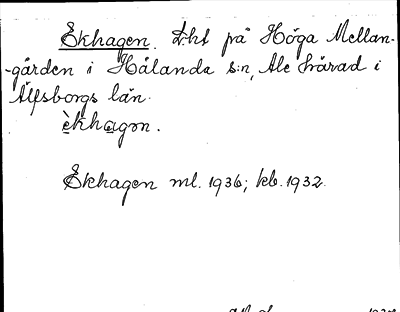 Ekhagen. L:ht på Höga Mellan-
-gården i Hålanda s:n, Ale härad i
Älfsborgs län.
èkhagən.
Ekhagen ml. 1936; kb. 1932.